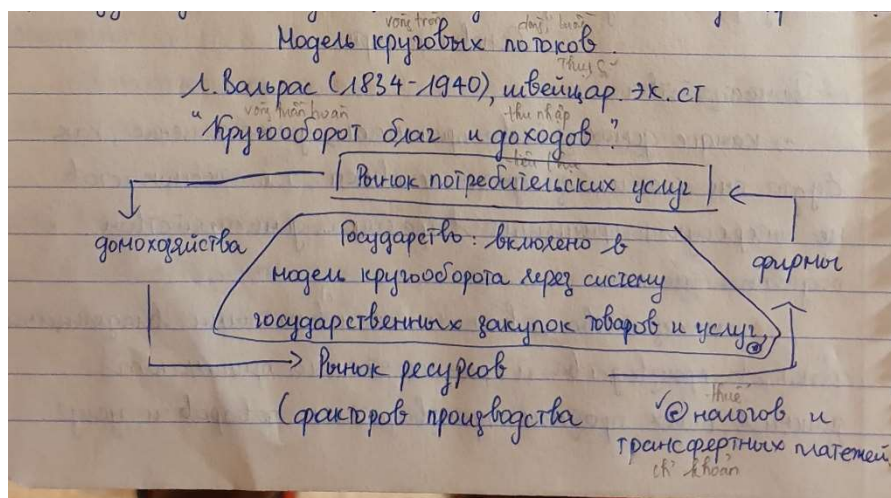 vòng tròn
Модель круговых потоков.
Thuỵ Sĩ
Л. Вальрас (1834-1940), швейцар. эк. ст
vòng tuần hoàn thu nhập
"Кругооборот благ и доходов"
Рынок потребительских услуг
домохозяйства
Государство: включено в
фирмы
модель кругооборота через систему
государственных закупок товаров и услуг,
Рынок ресурсов
(факторов производства
thuế
налогов и
трансфертных платежей
khoản